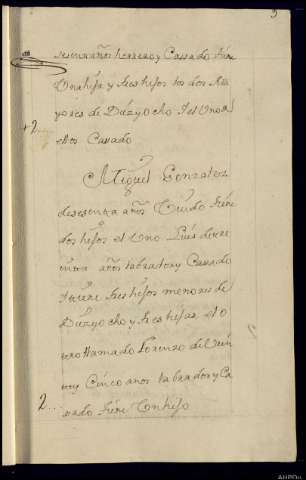 3
sesenta años herrero y Cassado tiene
Una hija y tres hijos los dos Ma
yores de Diez y ocho I el Uno de
ellos Casado
+2
Miguel Gonzalez
de sesenta años Viudo tiene
dos hijos el Uno Luis de tre
inta años labrador y Cassado
I tiene tres hijos menores de
Diez y ocho y tres hijas el o
tro llamado Lorenzo de Vein
te y Cinco anos labrador y Ca
2 ssado tiene Un hijo
AHPBu